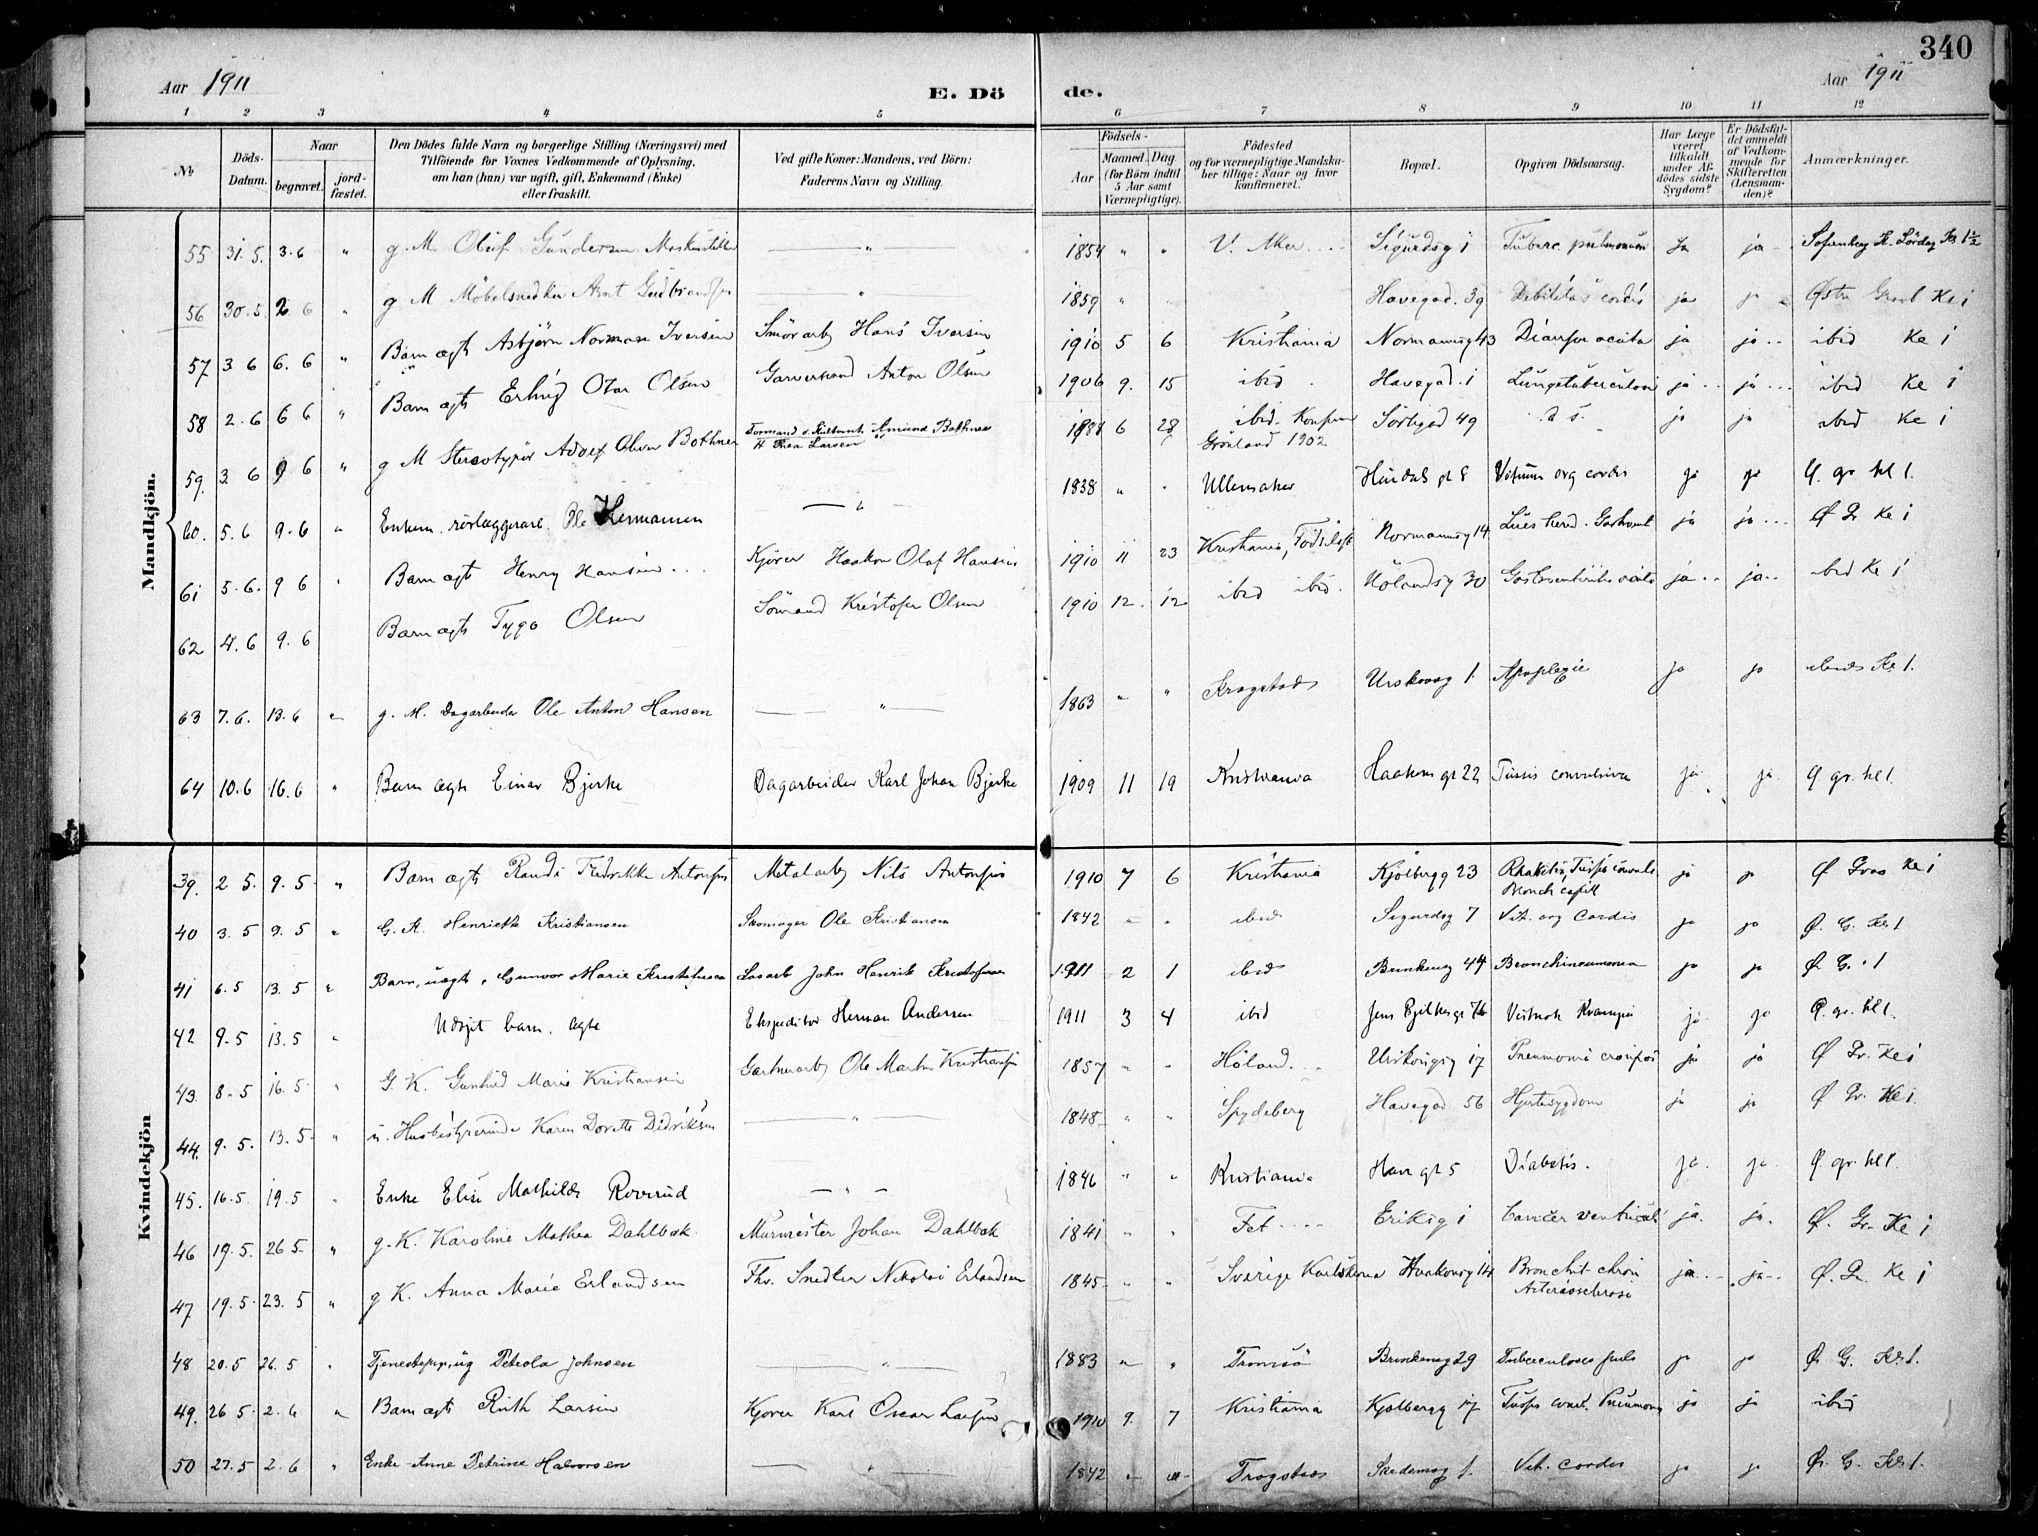 340
Aar 1911
E. Dö
de.
Aar 1911
1 2 3 4 5 6 7 8 9 10 11 12
No
Döds-
Datum.
Naar
begravet.
jord-
fæstet.
Den Dödes fulde Navn og borgerlige Stilling (Næringsvei) med
Tilföiende for Voxnes Vedkommende af Oplysning,
om han (hun) var ugift, gift, Enkemand (Enke)
eller fraskilt.
Ved gifte Koner: Mandens, ved Börn:
Faderens Navn og Stilling.
Födsels-
Aar
Maaned Dag
(for Börn indtil
5 Aar samt
Værnepligtige).
Födested
og for værnepligtige Mandska-
ber tillige: Naar og hvor
konfirmeret.
Bopæl.
Opgiven Dödsaarsag.
Har Læge
været
tilkaldt
under Af-
dödes sidste
Sygdom?
Er Dödsfal-
det anmeldt
af Vedkom-
mende for
Skifteretten
(Lensman-
den)?
Anmærkninger.
Mandkjön.
55 31.5. 3.6 " g. M. Oluf Gundersen — " — 1854 " " V. Aker Sigurdsg 1 Tuberc. pulmonum ja ja
56 30.5. 2 6 " g M Möbelsnedker Arnt Gudbrandsen — " — 1859 " " Havegad. 39 Debilitas cordis ja Østre Grav Ke 1
57 3 6 6.6 " Barn ægte Asbjörn Norman Iversen Smörarb Hans Iversen 1910 5 6 Kristiania Normannsg 43 Diarrhoe acuta ja ja ibid Ke 1
58 2.6 6 6 " Barn ægte Erling Otar Olsen Garversvend Anton Olsen 1906 9. 15 ibid Havegad. 1 Lungetuberculose ja ja ibid Ke 1
59. 3 6 9 6 " g M Stereotypör Adolf Oliver Bothner Amund Bothner
H Thea Larsen 1881 6 28 ibid. Konfirm
Grönland 1902 Sörligad 49 ja ja ibid Ke 1
60. 5.6 9.6 " Enkem. rörlæggerarb. Ole Hermansen — " — 1838 " " Ullensaker Hurdals gt 8 Vitium org cordis ja ja Ø gr. kl 1.
61 5.6. 9 6 " Barn ægte Henry Hansen Kjörer Haakon Olaf Hansen 1910 11 23 Kristiania, Födselsst Normannsg 14 ja ja Ø Gr Ke 1
62 4.6 9.6 Barn ægte Tygo Olsen Sömand Kristofer Olsen 1910 12. 12 ibid ibid. Hölandsg 30 Gastroenteritis acuta ja ja ibid Ke 1
63 7.6. 13.6 " g. M. Dagarbeider Ole Anton Hansen — " — 1863 " " Krogstads Urskovsg 1. Apoplexie ja ja ibids Kl 1.
64 10.6 16.6 " Barn ægte Einar Bjerke Dagarbeider Karl Johan Bjerke 1909 11 19 Kristiania Haakons gt 22 Tussis convulsiva ja ja Ø gr. kl 1.
Kvindekjön
39. 2 5. 9.5 " Barn ægte Randi Fredrikke Antonsen Metalarb Nils Antonsen 1910 7 6 Kristiania Kjölbergg 23 Rhakitis, Tussis convuls
Bronch capill ja ja Ø Grav Ke 1
40 3.5 9.5 " G. K. Henriette Kristiansen Skomager Ole Kristiansen 1842 " " ibids Sigurdsg 7 Vit. org Cordis ja ja Ø. G. Kl 1
41 6.5 13.5 " Barn, uægte, Gunvor Marie Kristofersen Losarb John Henrik Kristofersen 1911 2 1 ibids Brinkensg 44 Bronchipneumonia ja ja Ø. G. " 1
42 9.5 13.5 " Udöpt barn. ægte Ekspeditör Herman Andersen 1911 3 4 ibid Jens Bjelkes gt 76 Krampe ja ja Ø. gr. kl 1.
43. 8.5 16.5 " G. K. Gunhild Marie Kristiansen Gartnerarb Ole Martin Kristiansen 1857 " " Höland Urskougsg 17 Pneumonia crouposa ja ja Ø Gr. Ke 1
44. 9.5. 13.5 " u. Husbestyrerinde Karen Dorette Didriksen — " — 1848 " " Spydeberg Havegad 56 Hjertesygdom ja ja Ø Gr. Ke 1.
45. 16.5 19.5 " Enke Elise Mathilde Roverud — " — 1846 " " Kristiania Have gt 5 Diabetis. ja. ja. Ø gr. kl 1.
46 19.5. 26 5 " g. K. Karoline Mathea Dahlbak Murmester Johan Dahlbak 1841 " " Fet Eriksg 1 Cancer ventriculi ja. ja. Ø. Gr. Ke 1
47 19.5. 23.5 " g K. Anna Marie Erlandsen Fhv. Snedker Nikolai Erlandsen 1845 " " Sverige Karlskrona Haakonsg 14 Bronchit chron
Arteriosclerose ja ja Ø. Gr. Ke 1
48 20.5 26.5 " Tjenestepige, ug Petrola Johnsen — " — 1883 " " Tromsö Brinkensg 29 Tuberculoses pulm ja ja Ø. G. Kl 1.
49. 26 5. 2.6 " Barn ægte Ruth Larsen Kjörer Karl Oscar Larsen 1910 9. 7 Kristiania Kjölbergg 17 Tussis conv. Pneumoni ja ja ibid
50 27.5 2.6 " Enke Anne Petrine Halvorsen — " — 1842 " " Trogstads Skedsmog 1. Vit. cordis ja ja Ø. G. Kl 1.